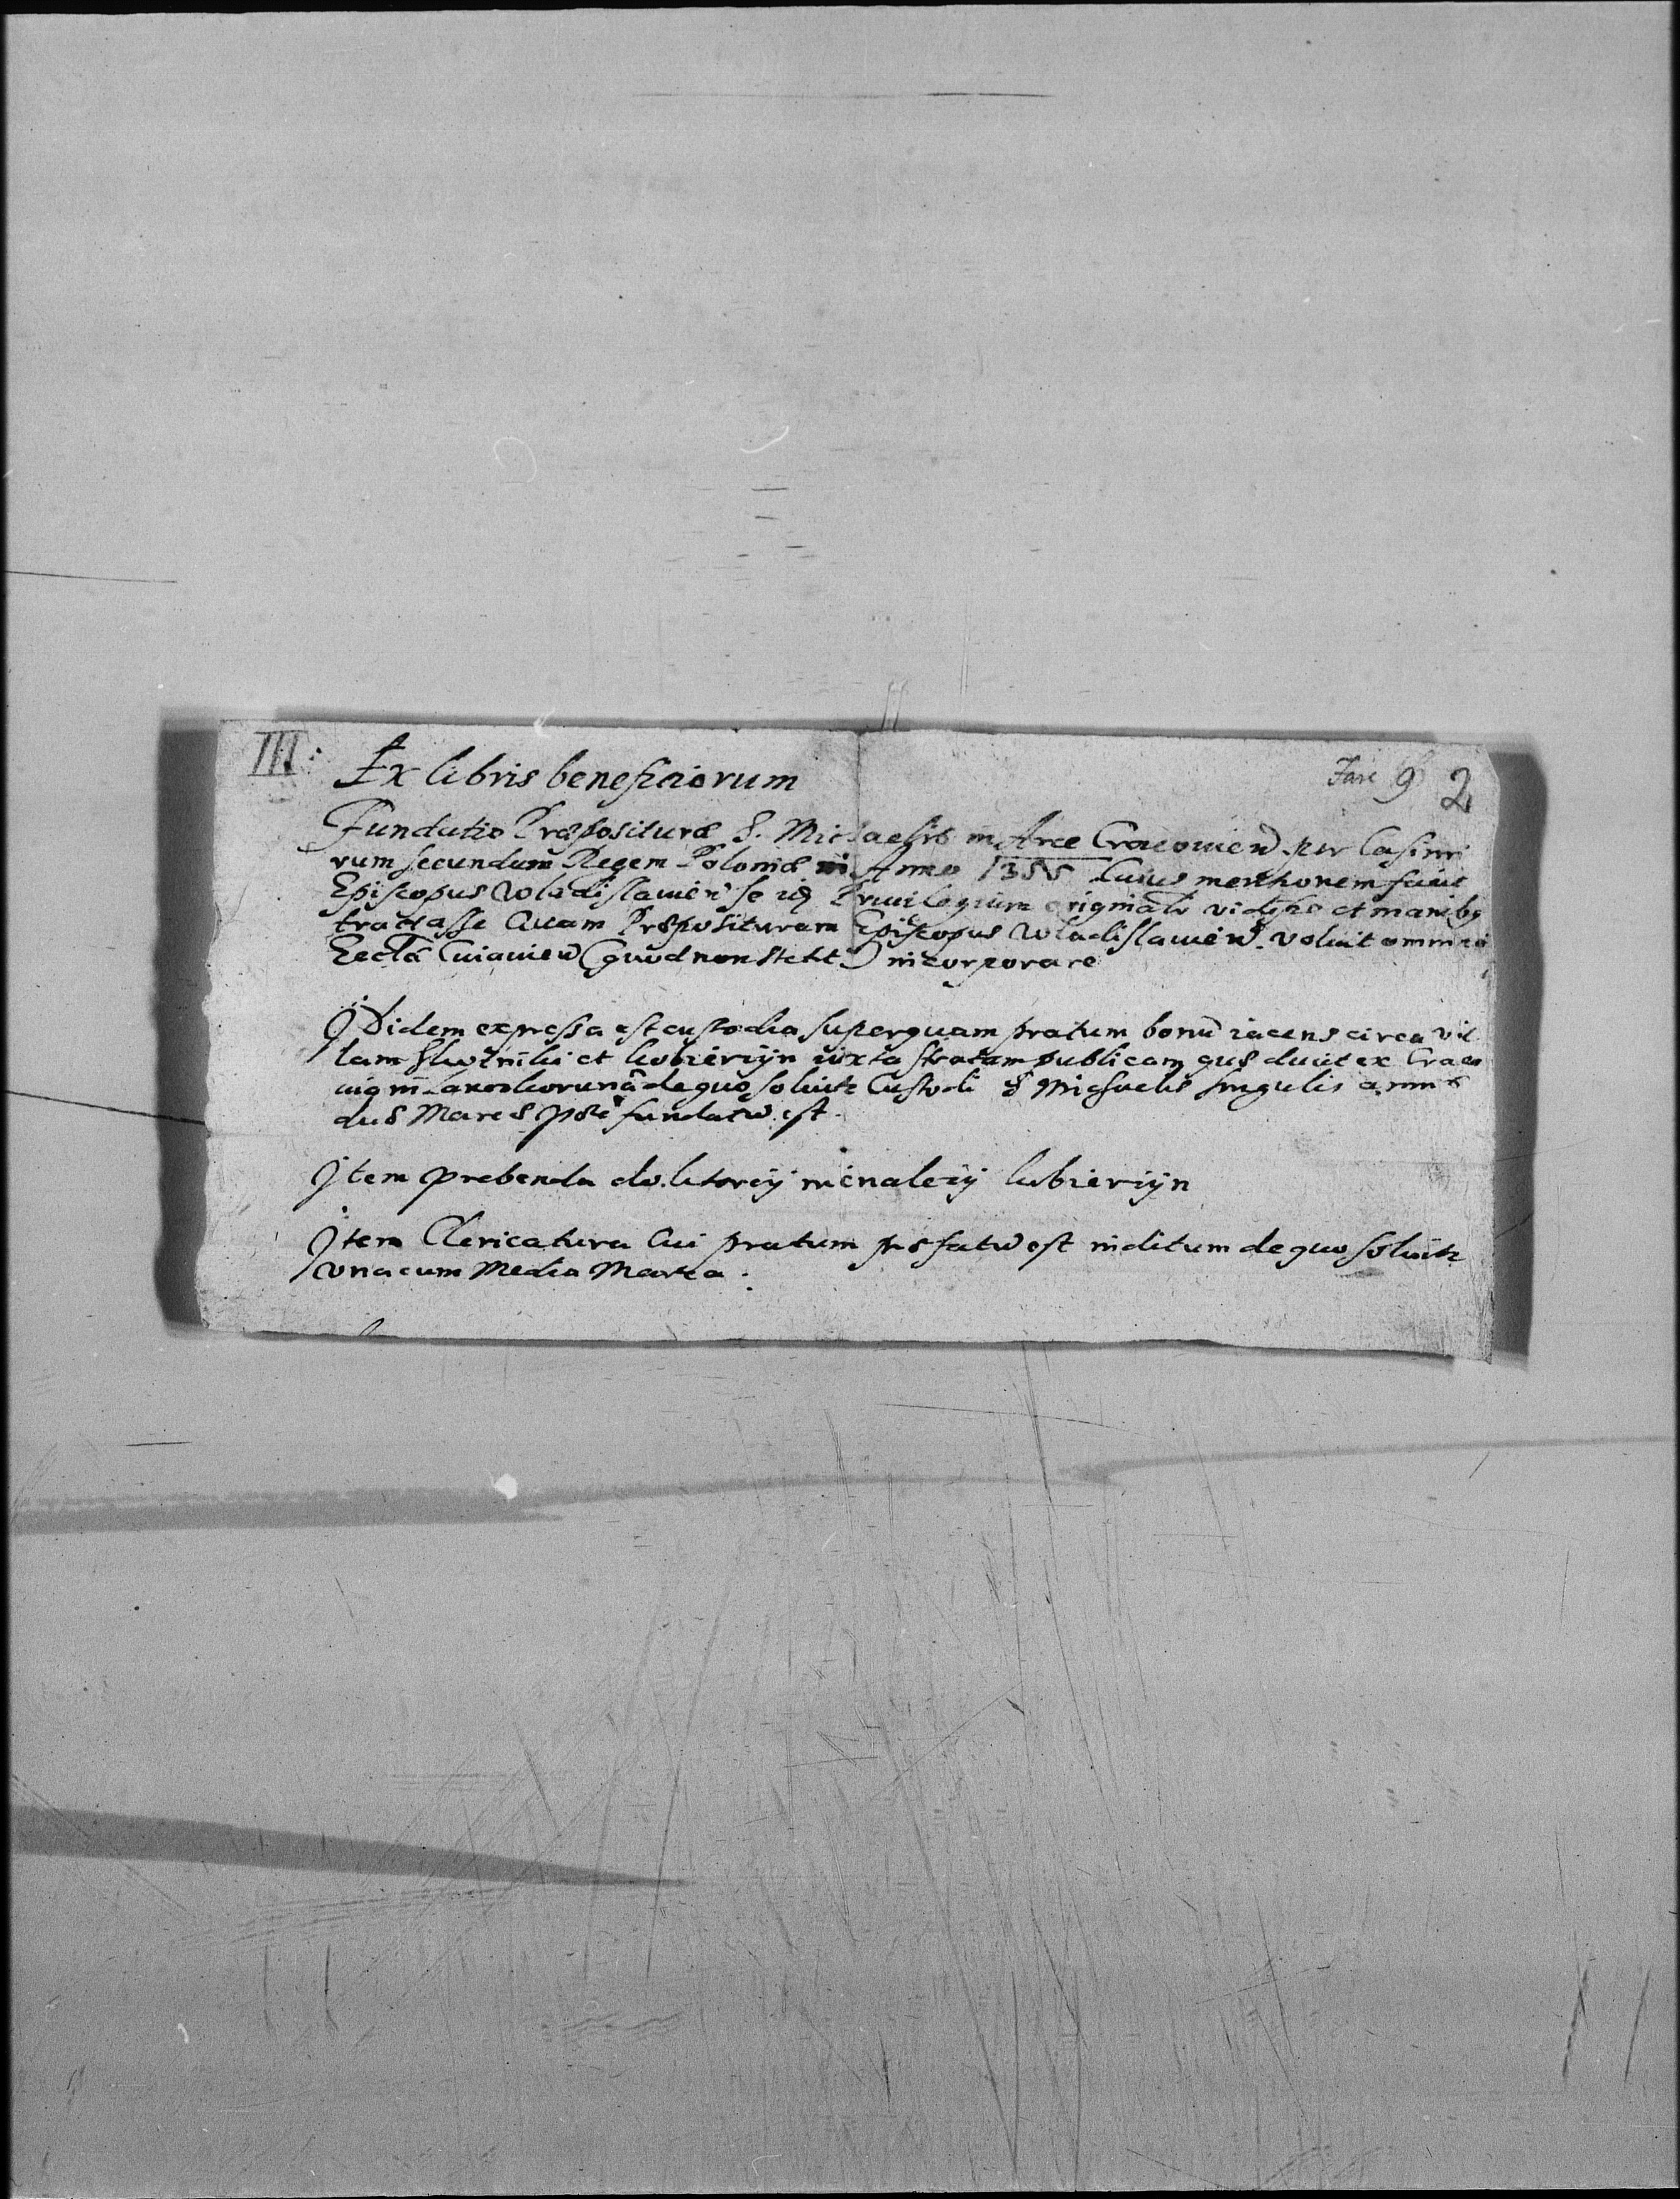 III: Ex libris beneficiorum Fasc 9 2
Fundatio Præposituræ S. Michaelis in Arce Cracouien per Casimi
rum secundum Regem Poloniæ in Anno 1355 Cuius mentionem facit
Episcopus Wladislauien se Priuilegium originale vidisse et manibq
tractasse Quam Præposituram Episcopus Wladislauien voluit omnino
Eccla Cuiauien (quod non stetit) incorporare
Ibidem expressa est custodia super quam pratum bonū iacens circa vil
lam et iuxta stratam publicam quæ ducit ex Craco
de quo soluit Custodi S Michaelis singulis annis
duas fundatū est.
Item prebenda
Item Clericatura Cui pratum præfatū est inditum de quo soluit
vnacum Media Marca.